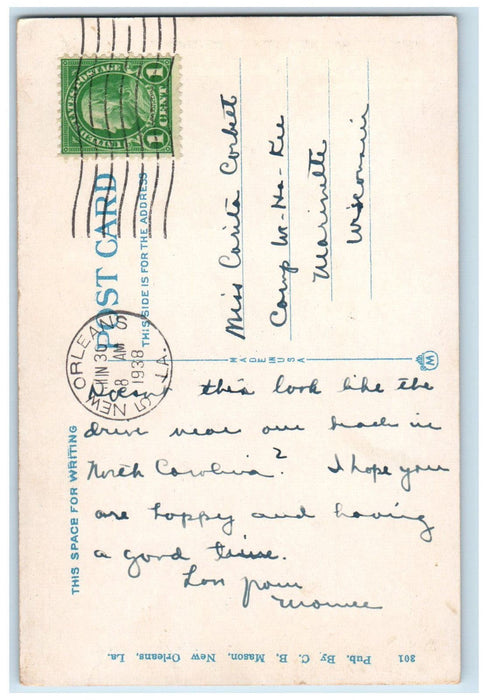 UNITED STATES POSTAGE
1 CENT 1
NEW ORLEANS, LA.
JUN 30
8 AM
1938
5
POST CARD
THIS SIDE IS FOR THE ADDRESS
Miss Carita Corbet
Camp We-Ha-Kee
Marinette
Wisconsin
MADE IN USA
THIS SPACE FOR WRITING
Doesn't this look like the
drive near our beach in
North Carolina? I hope you
are happy and having
a good time.
from
301 Pub. By C. B. Mason, New Orleans, La.